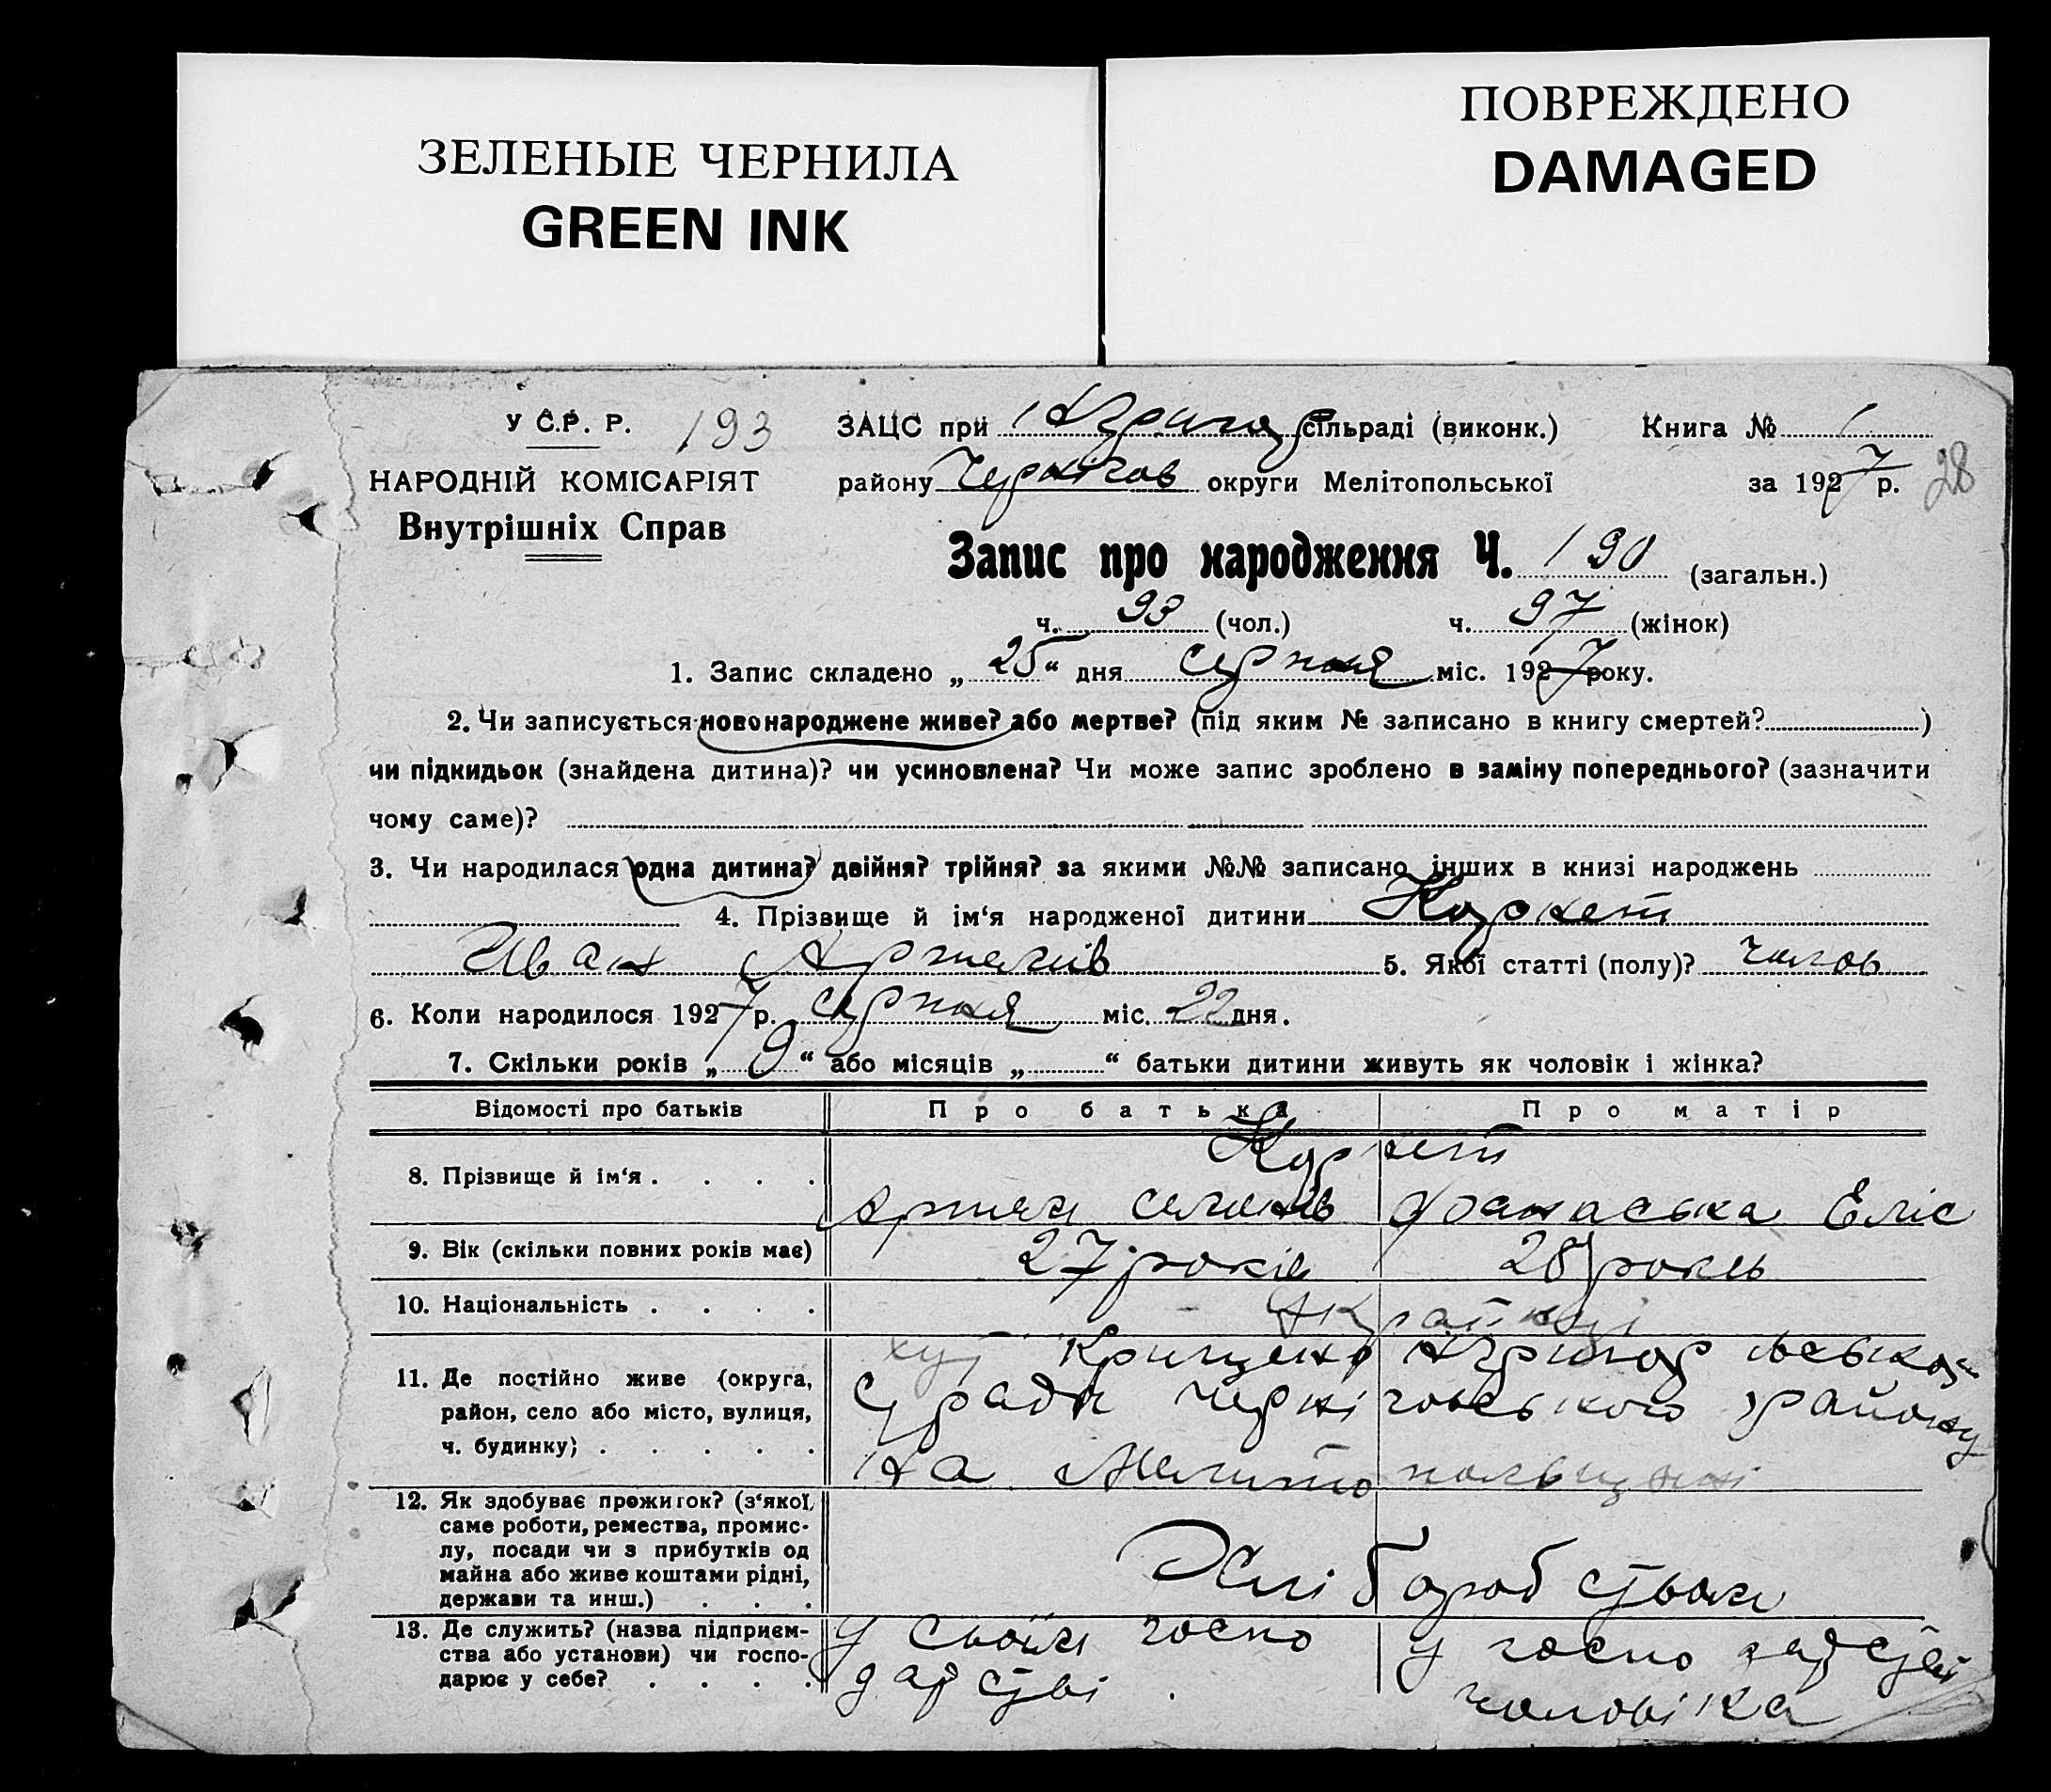 ЗЕЛЕНЫЕ ЧЕРНИЛА
GREEN INK
ПОВРЕЖДЕНО
DAMAGED
У С.Р. Р. 193 ЗАЦС при сільраді (виконк.) Книга № 1
НАРОДНІЙ КОМІСАРІЯТ району Чернігов округи Мелітопольської за 1927 р. 28
Внутрішніх Справ
Запис про народження Ч. 190 (загальн.)
ч. 93 (чол.) ч. 97 (жінок)
1. Запис складено „25“ дня серпня міс. 1927 року.
2. Чи записується новонароджене живе? або мертве? (під яким № записано в книгу смертей? )
чи підкидьок (знайдена дитина)? чи усиновлена? Чи може запис зроблено в заміну попереднього? (зазначити
чому саме)?
3. Чи народилася одна дитина? двійня? трійня? за якими №№ записано інших в книзі народжень
4. Прізвище й ім‘я народженої дитини
Иван 5. Якої статті (полу)? чолов
6. Коли народилося 1927 р. серпня міс. 22 дня.
7. Скільки років „9“ або місяців „ “ батьки дитини живуть як чоловік і жінка?
Відомості про батьків Про батька Про матір
8. Прізвище й ім‘я . . . .
9. Вік (скільки повних років має) 27 років 28 років
10. Національність . . . . Українці
11. Де постійно живе (округа,
район, село або місто, вулиця,
ч. будинку) . . . . .
с ради Черніговського району
на Мелитопольщині
12. Як здобуває прожиток? (з‘якої,
саме роботи, ремества, промис-
лу, посади чи з прибутків од
майна або живе коштами рідні,
держави та инш.) . . .
Хліборобством
13. Де служить? (назва підприєм-
ства або установи) чи госпо-
дарює у себе? . . . .
у своїм госпо
дарстві . у господарстві
чоловіка